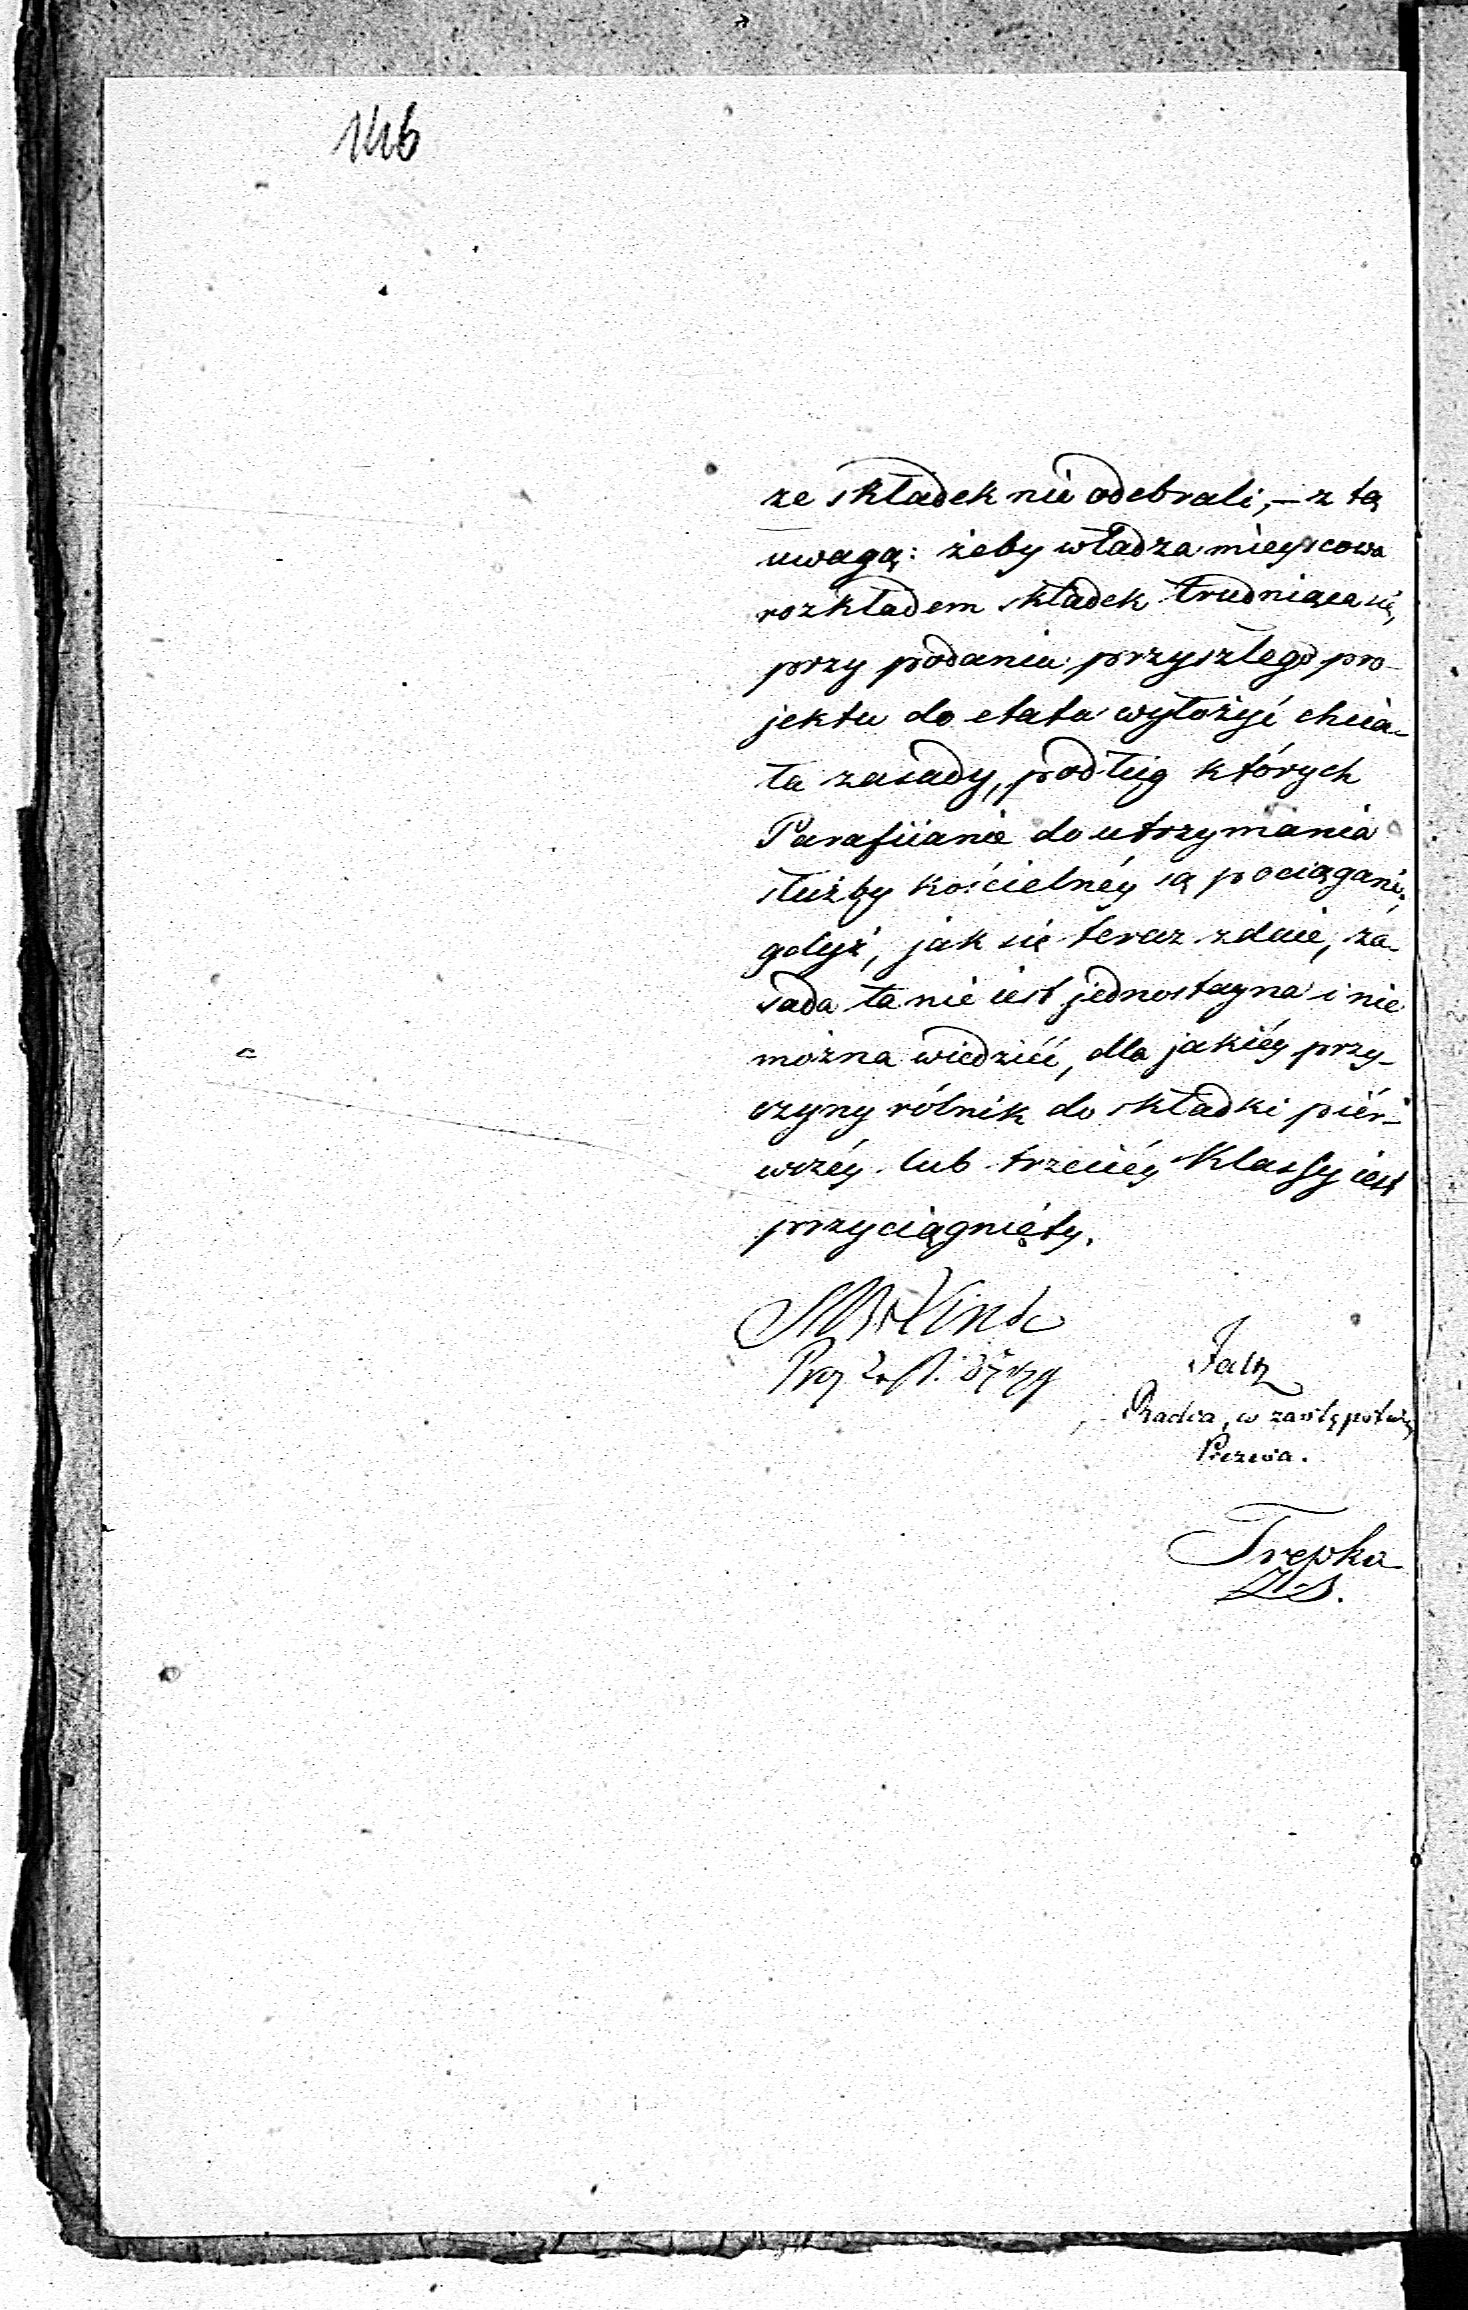 146
ze składek nie odebrali, – z tą
uwagą: żeby władza mieyscowa
rozkładem składek trudniąca się,
przy podaniu przyszłego pro-
jektu do etatu wyłożyć chcia-
ła zasady, podług których
Parafiianie do utrzymania
służby kościelnéy są pociągani,
gdyż, jak się teraz zdaie, za-
sada ta nie iest jednostayna i nie
można wiedzieć, dla jakiéy przy-
czyny rólnik do składki piér-
wszéy lub trzeciéy Klassy iest
przyciągnięty.
Radca, w zastępstwie
Prezesa.
Trepka